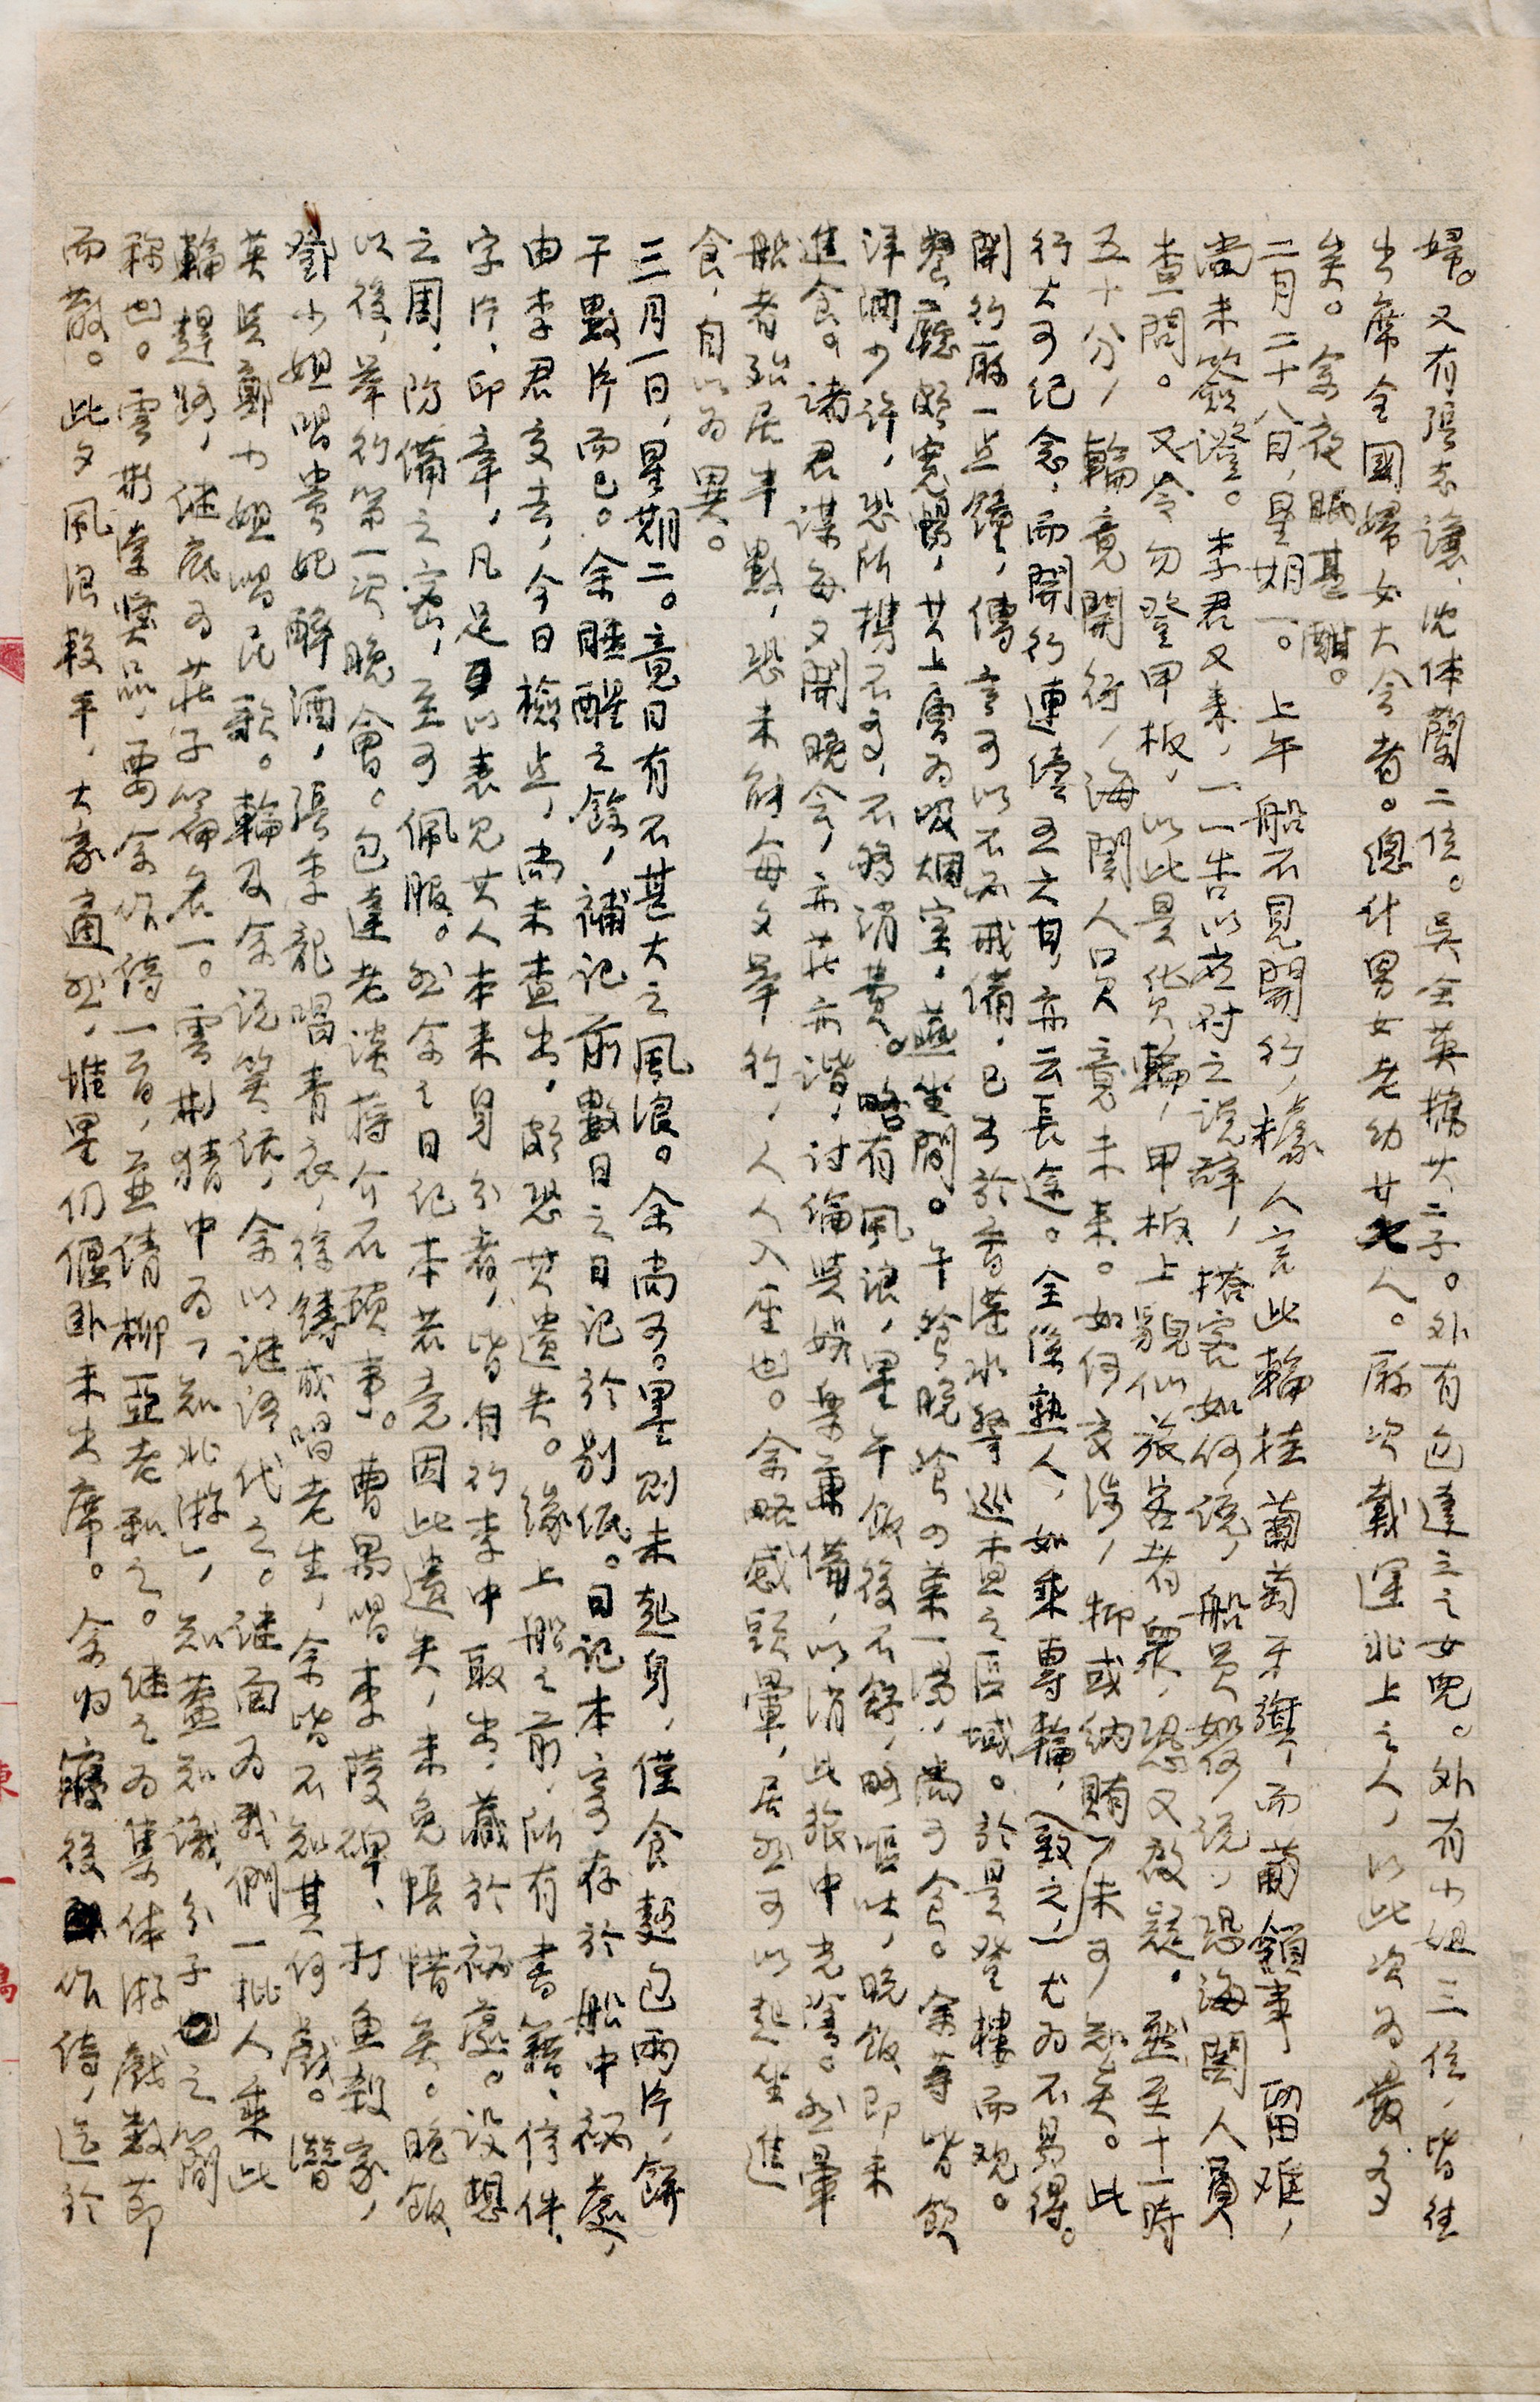 婦。又有張志讓、沈体蘭二位。吳全英攜其二子。外有包達三之女兒。外有小姐三位，皆往
出席全國婦女大會者。總計男女老幼廿七人。歷次載運北上之人，以此次為最多
矣。余夜眠甚酣。
二月二十八日，星期一。上午船不見開行，據人言此輪挂葡萄牙旗，而葡領事留难，
尚未簽證。李君又来，一一告以应对之说辞，搭客如何说，船员如何说，恐海關人員
查問。又令勿登甲板，以此是货輪，甲板上貌似旅客者众，恐又啟疑。默至十一時
五十分，輪竟開行，海關人员竟未来。如何交涉，抑或納賄（致之），未可知矣。此
行大可纪念，而開行連續五六日，亦云長途。全係熟人，如乘專輪，尤为不易得。
開行歷一点鐘，傳言可以不必戒備，已出於香港水警巡查之区域。於是登樓而观。
餐廳頗寬暢，其上層为吸烟室，燕坐閒。午餐晚餐四菜一湯，尚可食。余等皆飲
洋酒少許，恐所攜不多，不够消費。略有風浪，墨午飯後不舒，略嘔吐，晚飯即未
進食。诸君谋每夕開晚会，亦莊亦諧，讨論與娛樂兼備，以消此旅中光陰。然暈
船者殆居半數，恐未能每夕舉行，人人入座也。余略感頭暈，居然可以起坐進
食，自以为異。
三月一日，星期二。竟日有不甚大之風浪。余尚可。墨则未起身，僅食麵包兩片，餅
干數片而已。余睡醒之餘，補记前數日之日记於别纸。日记本寄存於船中秘處，
由李君交去，今日檢点，尚未查出，頗恐其遺失。缘上船之前，所有書籍、信件、
字片、印章，凡足以表見其人本来身分者，皆自行李中取出，藏於秘處。设想
之周，防備之密，至可佩服。然余之日记本若竟因此遺失，未免悵惜矣。晚飯
以後，举行第一次晚會。包達老谈蔣介石琐事。曹禺唱李陵碑、打魚殺家，
鄧小姐唱貴妃醉酒，張季龍唱青衣，徐鑄成唱老生，余皆不知其何戲。潛
英與鄭小姐唱民歌。輪及余说笑话，余以谜语代之。谜面为我們一批人乘此
輪趕路，谜底为莊子篇名一。雲彬猜中为「知北游」，知蓋知識分子之簡
稱也。雲彬索獎品，要余作诗一首，並请柳亞老和之。继之为集体游戲数節
而散。此夕風浪較平，大家適然，惟墨仍偃卧未出席。余归寢後作诗，迄於